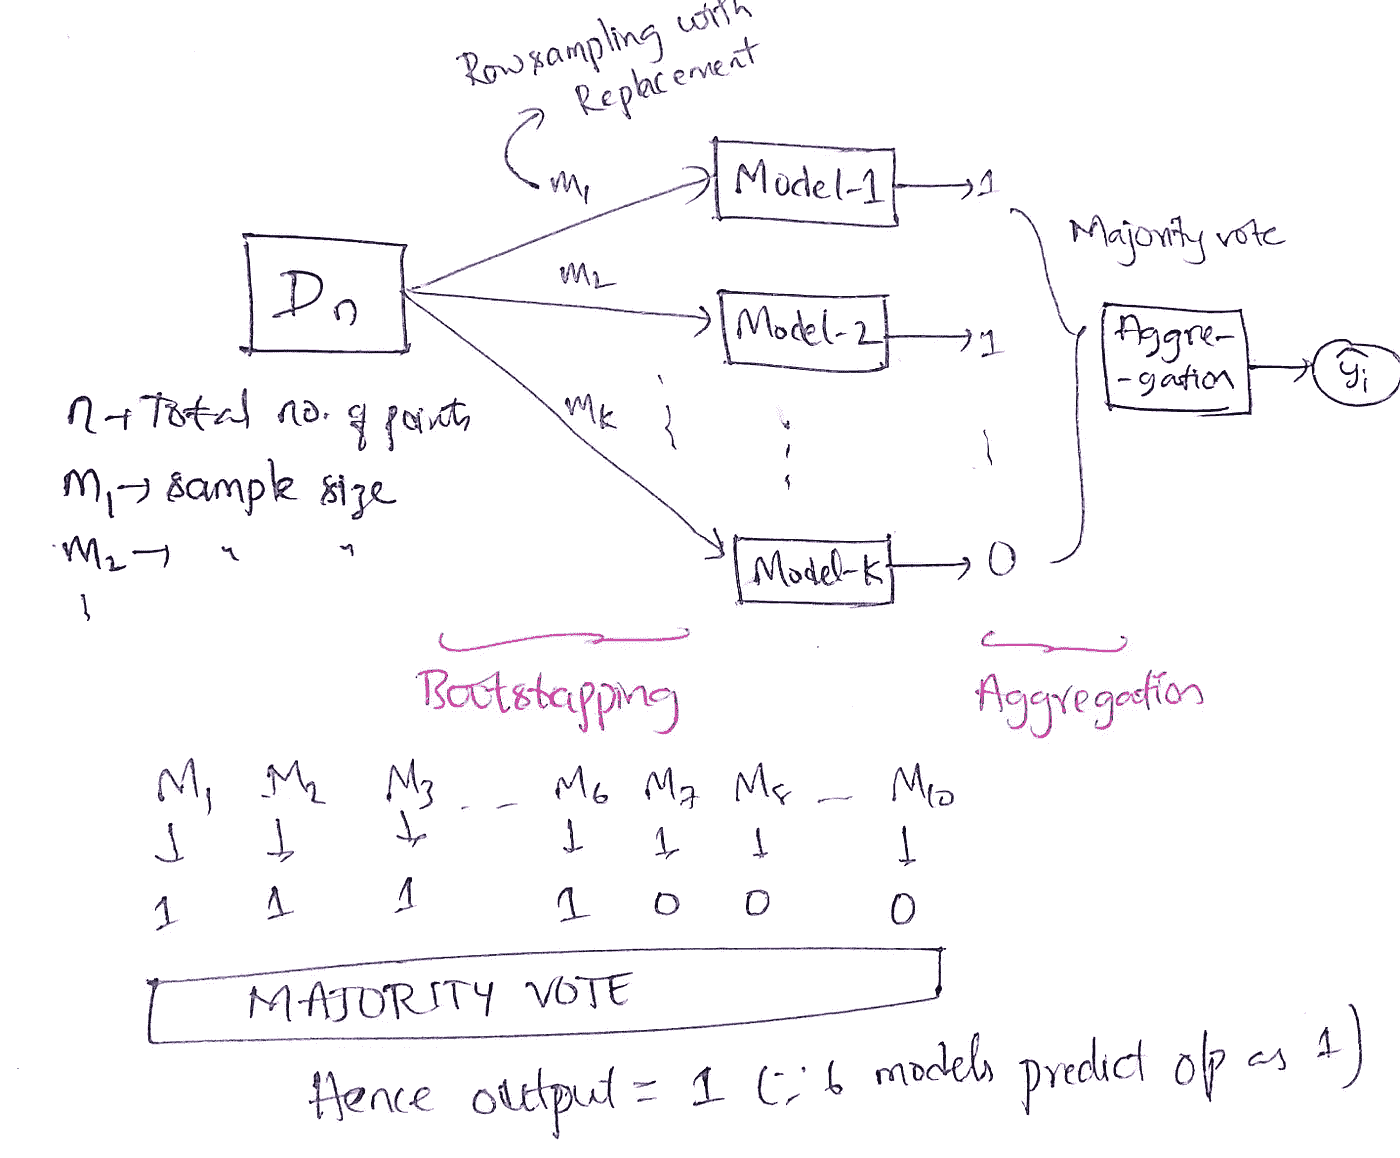 Row sampling with
Replacement
m₁
Model-1 → 1
Majority vote
Dn
m₂
Model-2 → 1
Aggre-
-gation → ŷi
mk
n → Total no. of points
m₁ → sample size
m₂ → " "
Model-k → 0
Bootstapping
Aggregation
M₁ M₂ M₃ - - M₆ M₇ M₈ - M₁₀
↓ ↓ ↓ ↓ ↓ ↓ ↓
1 1 1 1 0 0 0
MAJORITY VOTE
Hence output = 1 (∵ 6 models predict o/p as 1)